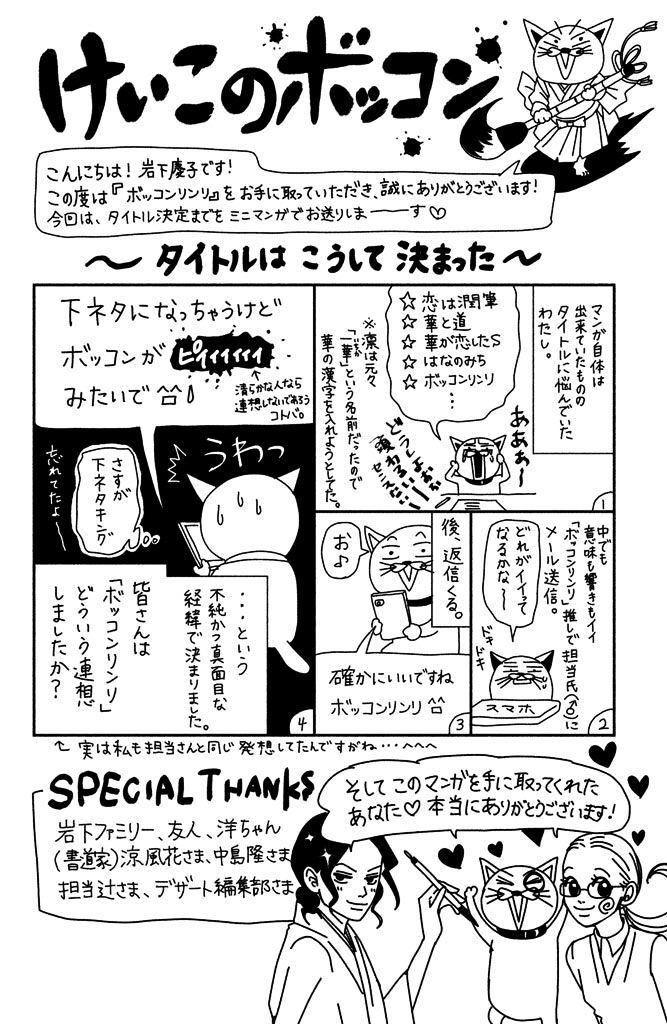 けいこのボッコン
こんにちは！岩下慶子です！
この度は『ボッコンリンリ』をお手に取っていただき、誠にありがとうございます！
今回は、タイトル決定までをミニマンガでお送りしまーーーす♡
〜タイトルはこうして決まった〜
マンガ自体は
出来ていたものの
タイトルに悩んでいた
わたし。
☆恋は潤筆
☆華と道
☆華が恋したS
☆はなのみち
☆ボッコンリンリ
…
※凛は元々
「一華」という名前だったので
華の漢字を入れようとしてた。
あああ〜
どうしよおお
頭わるい
センスない
1
中でも
意味も響きもイイ
「ボッコンリンリ」推しで担当氏(♂)に
メール送信。
どれがイイって
なるかな〜
ドキ
ドキ
スマホ
2
後、返信くる。
お♪
確かにいいですね
ボッコンリンリ^^
3
下ネタになっちゃうけど
ボッコンがピィィィィィ
みたいで^^♪
↑
清らかな人なら
連想しないであろう
コトバ。
うわっ
さすが
下ネタキング
忘れてたよ——
…という
不純かつ真面目な
経緯で決まりました。
皆さんは
「ボッコンリンリ」
どういう連想
しましたか？
4
実は私も担当さんと同じ発想してたんですがね…へへへ
SPECIAL THANKS
岩下ファミリー、友人、洋ちゃん
(書道家)涼風花さま、中島隆さま
担当辻さま、デザート編集部さま
そしてこのマンガを手に取ってくれた
あなた♡本当にありがとうございます！